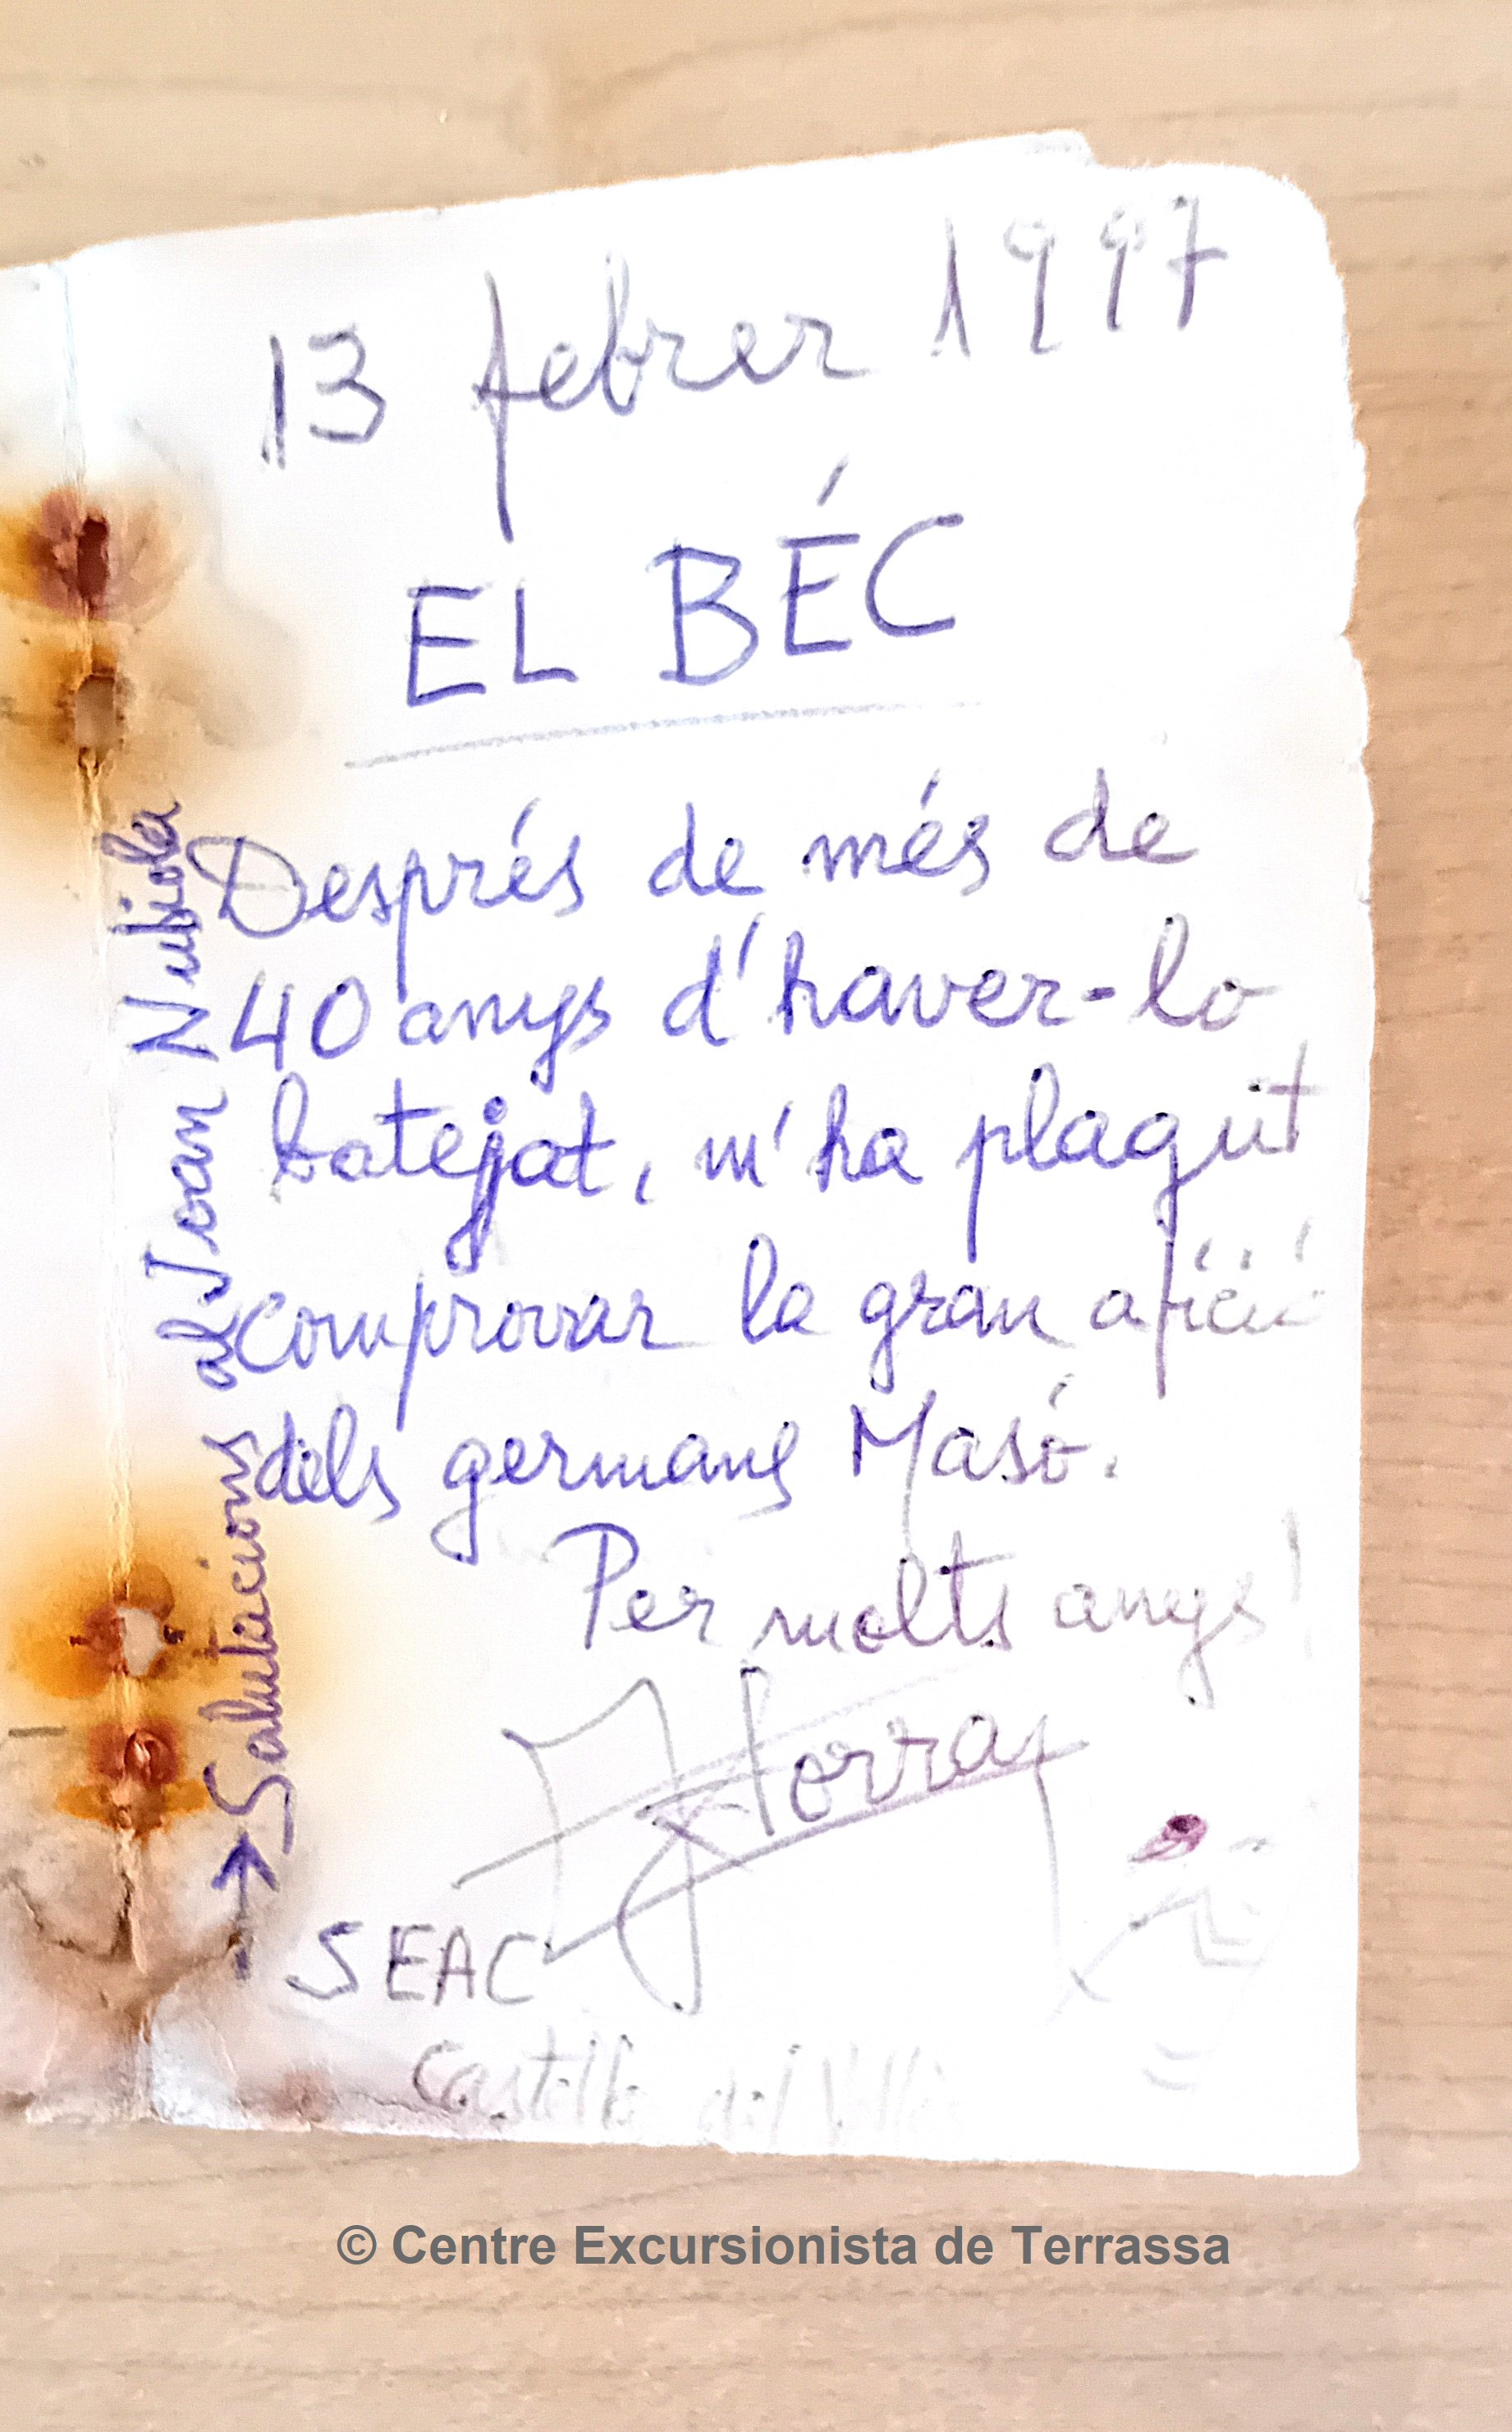 13 febrer 1997
EL BÉC
Després de més de
40 anys d'haver-lo
batejat, m'ha plagut
comprovar la gran afició
dels germans Masó.
Per molts anys!
SEAC
Castellar del Vallès
→ Salutacions al Joan Nubiola
© Centre Excursionista de Terrassa